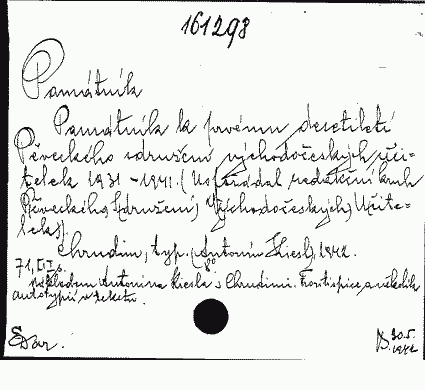 161298
Památník
Památník k prvému desetiletí
Pěveckého sdružení východočeských uči-
telek 1931-1941. (Uspořádal redakční kruh
Pěveckého Sdružení Východočeských Učite-
lek).
Chrudim, typ. (Antonín Kiesl), 1942.
71, [I] s. 8°
nákladem Antonína Kiesla v Chrudimi. Frontispice a několik
autotypií v textu.
Dar.
30.5.
1942